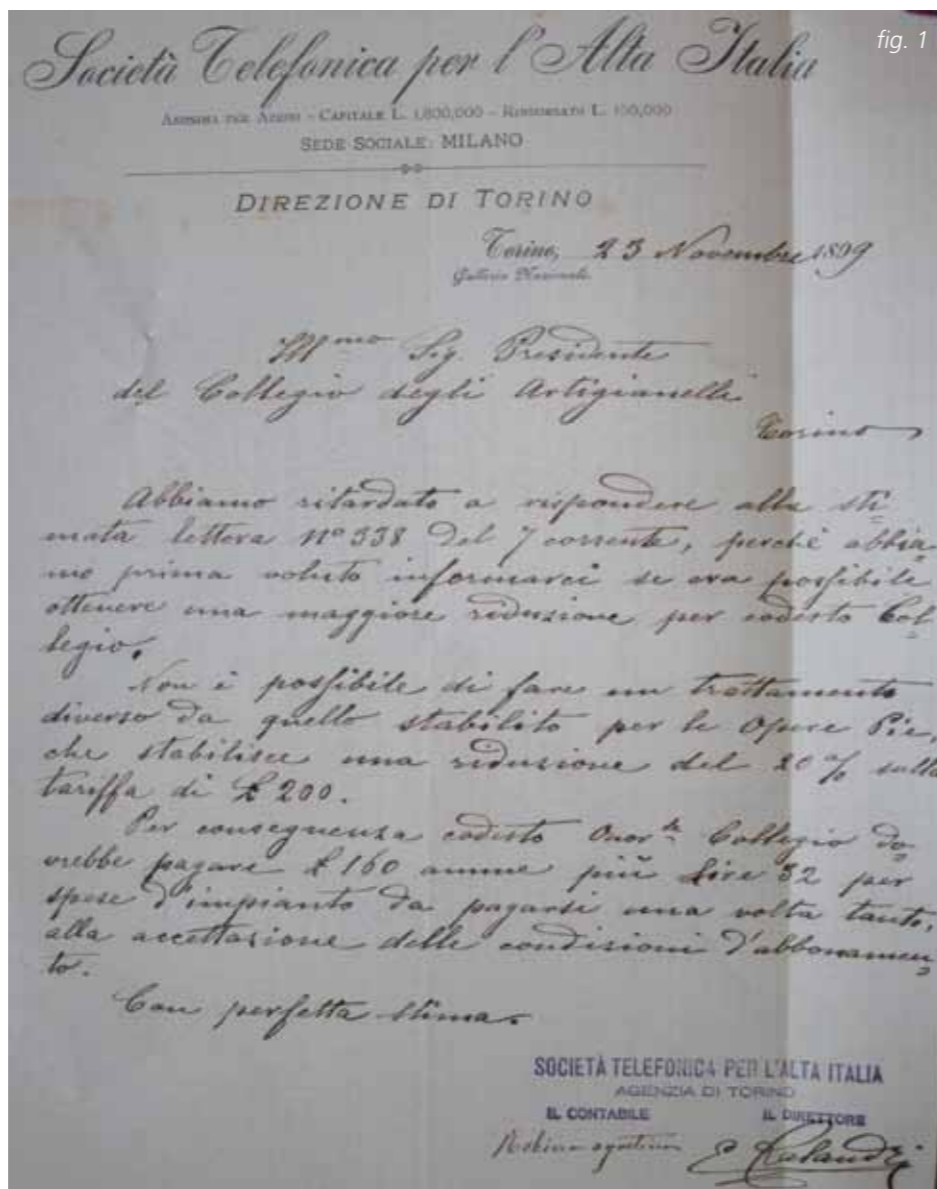 fig. 1
Società Telefonica per l'Alta Italia
Anonima per Azioni - Capitale L. 1,800,000 - Rimborsato L. 100,000
Sede Sociale: MILANO
DIREZIONE DI TORINO
Torino, 23 Novembre 1899
Galleria Nazionale
Ill.mo Sig. Presidente
del Collegio degli Artigianelli
Torino
Abbiamo ritardato a rispondere alla sti
mata lettera No 338 del 7 corrente, perchè abbia
mo prima voluto informarci se era possibile
ottenere una maggiore riduzione per codesto Col
legio.
Non è possibile di fare un trattamento
diverso da quello stabilito per le Opere Pie,
che stabilisce una riduzione del 20 % sulla
tariffa di £ 200.
Per conseguenza codesto Onor.le Collegio do
vrebbe pagare £ 160 annue più Lire 32 per
spese d'impianto da pagarsi una volta tanto,
alla accettazione delle condizioni d'abbonamen
to.
Con perfetta stima.
SOCIETÀ TELEFONICA PER L'ALTA ITALIA
AGENZIA DI TORINO
IL CONTABILE IL DIRETTORE